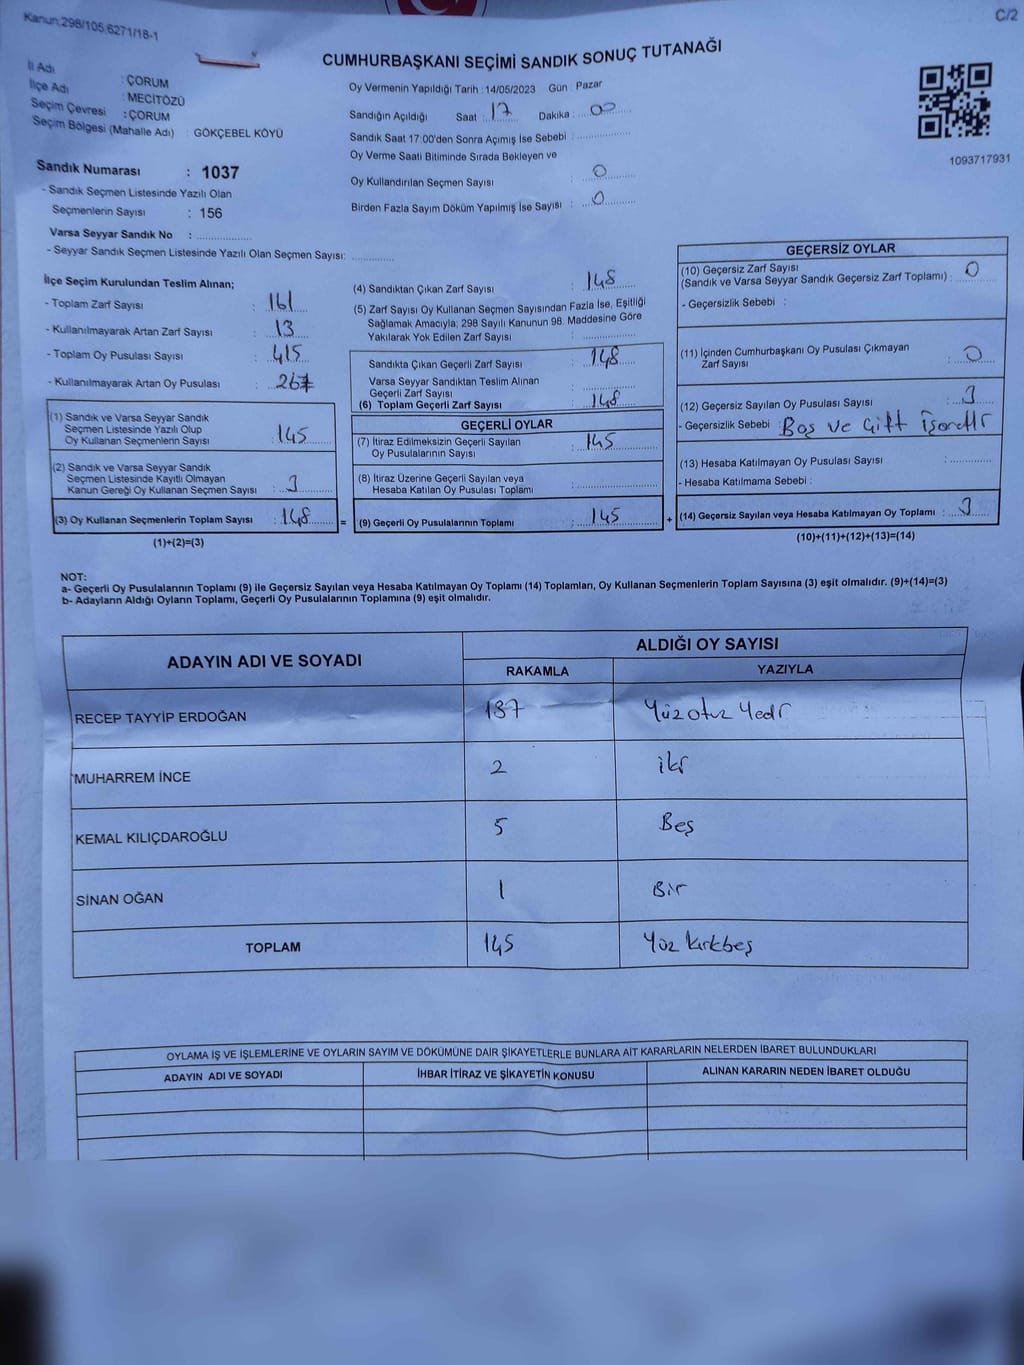 Kanun:298/105,6271/18-1
C/2
CUMHURBAŞKANI SEÇİMİ SANDIK SONUÇ TUTANAĞI
İl Adı : ÇORUM
İlçe Adı : MECİTÖZÜ
Seçim Çevresi : ÇORUM
Seçim Bölgesi (Mahalle Adı) : GÖKÇEBEL KÖYÜ
Sandık Numarası : 1037
- Sandık Seçmen Listesinde Yazılı Olan
Seçmenlerin Sayısı : 156
Varsa Seyyar Sandık No :
- Seyyar Sandık Seçmen Listesinde Yazılı Olan Seçmen Sayısı:
Oy Vermenin Yapıldığı Tarih : 14/05/2023 Gün : Pazar
Sandığın Açıldığı Saat : 17 Dakika : 00
Sandık Saat 17:00'den Sonra Açımış İse Sebebi :
Oy Verme Saati Bitiminde Sırada Bekleyen ve
Oy Kullandırılan Seçmen Sayısı : 0
Birden Fazla Sayım Döküm Yapılmış İse Sayısı : 0
1093717931
İlçe Seçim Kurulundan Teslim Alınan;
- Toplam Zarf Sayısı : 161
- Kullanılmayarak Artan Zarf Sayısı : 13
- Toplam Oy Pusulası Sayısı : 415
- Kullanılmayarak Artan Oy Pusulası : 267
(1) Sandık ve Varsa Seyyar Sandık
Seçmen Listesinde Yazılı Olup
Oy Kullanan Seçmenlerin Sayısı : 145
(2) Sandık ve Varsa Seyyar Sandık
Seçmen Listesinde Kayıtlı Olmayan
Kanun Gereği Oy Kullanan Seçmen Sayısı : 3
(3) Oy Kullanan Seçmenlerin Toplam Sayısı : 148 =
(1)+(2)=(3)
(4) Sandıktan Çıkan Zarf Sayısı : 148
(5) Zarf Sayısı Oy Kullanan Seçmen Sayısından Fazla İse, Eşitliği
Sağlamak Amacıyla; 298 Sayılı Kanunun 98. Maddesine Göre
Yakılarak Yok Edilen Zarf Sayısı :
Sandıkta Çıkan Geçerli Zarf Sayısı : 148
Varsa Seyyar Sandıktan Teslim Alınan
Geçerli Zarf Sayısı :
(6) Toplam Geçerli Zarf Sayısı : 148
GEÇERLİ OYLAR
(7) İtiraz Edilmeksizin Geçerli Sayılan
Oy Pusulalarının Sayısı : 145
(8) İtiraz Üzerine Geçerli Sayılan ve
Hesaba Katılan Oy Pusulası Toplamı :
(9) Geçerli Oy Pusulalarının Toplamı : 145 +
GEÇERSİZ OYLAR
(10) Geçersiz Zarf Sayısı
(Sandık ve Varsa Seyyar Sandık Geçersiz Zarf Toplamı) : 0
- Geçersizlik Sebebi :
(11) İçinden Cumhurbaşkanı Oy Pusulası Çıkmayan
Zarf Sayısı : 0
(12) Geçersiz Sayılan Oy Pusulası Sayısı : 3
- Geçersizlik Sebebi : Boş ve Çift İşaretli
(13) Hesaba Katılmayan Oy Pusulası Sayısı :
- Hesaba Katılmama Sebebi :
(14) Geçersiz Sayılan veya Hesaba Katılmayan Oy Toplamı : 3
(10)+(11)+(12)+(13)=(14)
NOT:
a- Geçerli Oy Pusulalarının Toplamı (9) ile Geçersiz Sayılan veya Hesaba Katılmayan Oy Toplamı (14) Toplamları, Oy Kullanan Seçmenlerin Toplam Sayısına (3) eşit olmalıdır. (9)+(14)=(3)
b- Adayların Aldığı Oyların Toplamı, Geçerli Oy Pusulalarının Toplamına (9) eşit olmalıdır.
ADAYIN ADI VE SOYADI
ALDIĞI OY SAYISI
RAKAMLA YAZIYLA
RECEP TAYYİP ERDOĞAN 137 Yüz otuz yedi
MUHARREM İNCE 2 iki
KEMAL KILIÇDAROĞLU 5 Beş
SİNAN OĞAN 1 Bir
TOPLAM 145 Yüz kırkbeş
OYLAMA İŞ VE İŞLEMLERİNE VE OYLARIN SAYIM VE DÖKÜMÜNE DAİR ŞİKAYETLERLE BUNLARA AİT KARARLARIN NELERDEN İBARET BULUNDUKLARI
ADAYIN ADI VE SOYADI İHBAR İTİRAZ VE ŞİKAYETİN KONUSU ALINAN KARARIN NEDEN İBARET OLDUĞU